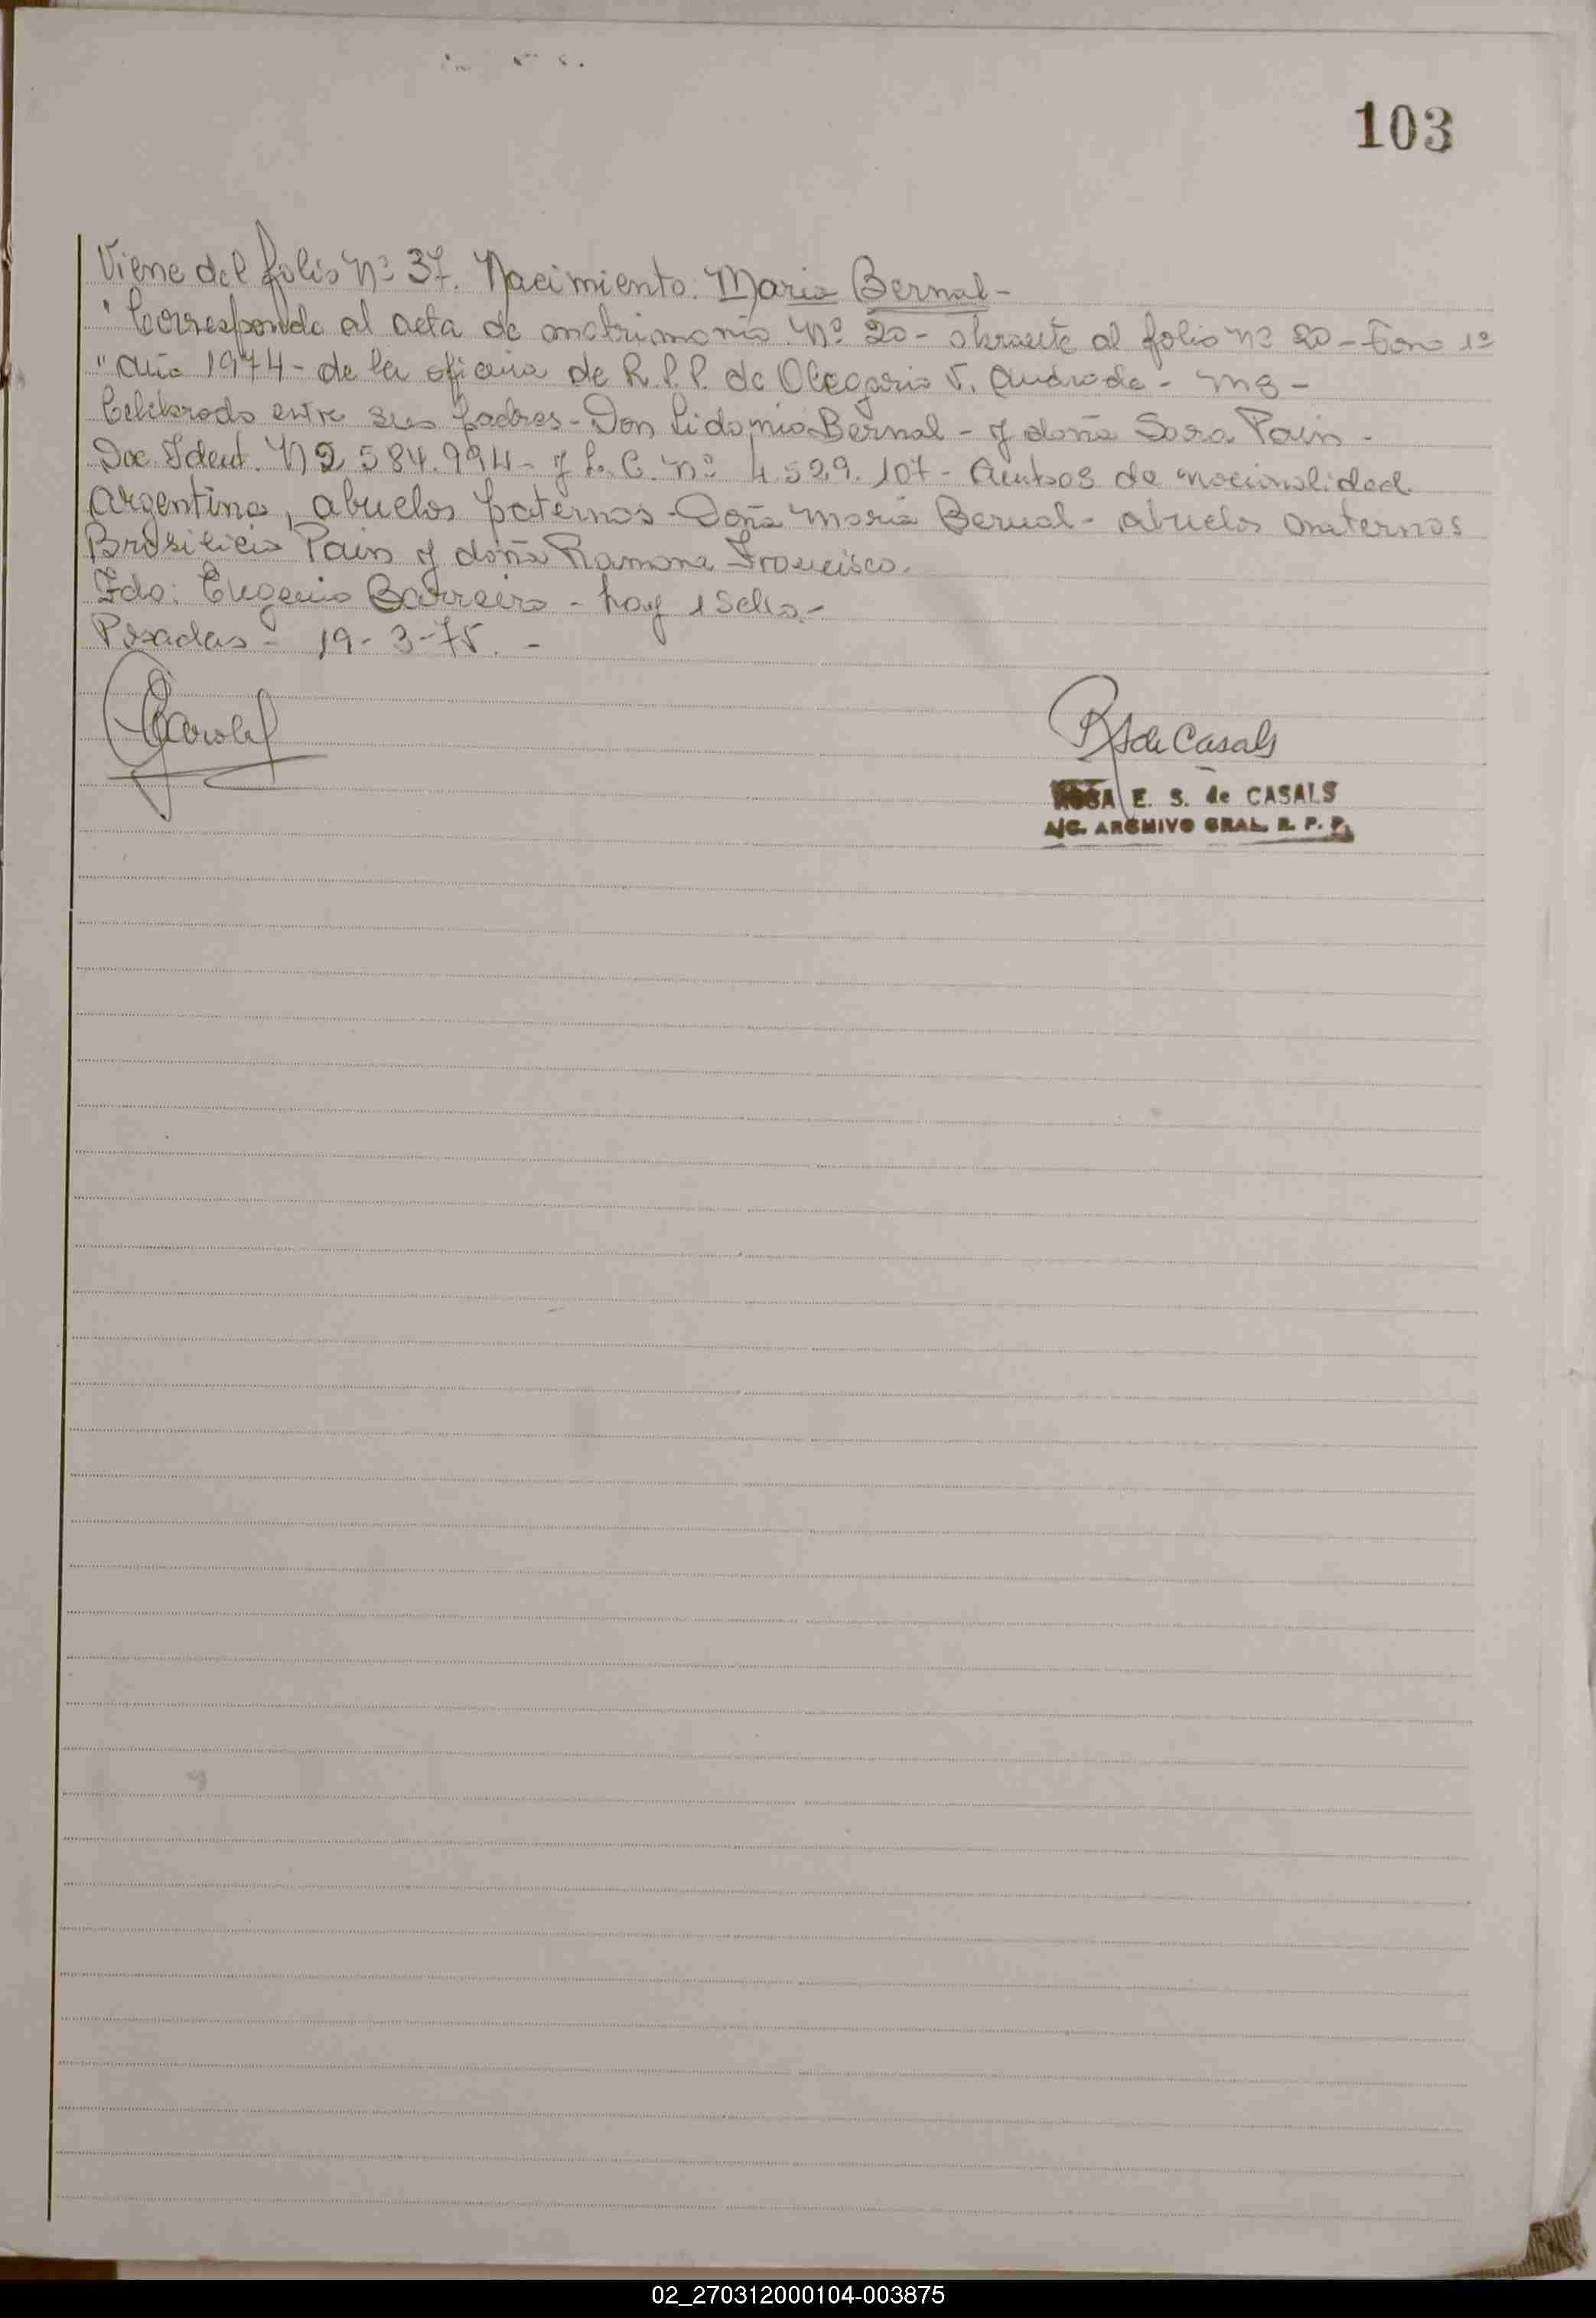 103
Viene del folio Nº 37. Nacimiento: Maria Bernal-
"Corresponde al acta de matrimonio. Nº 20- obrante al folio nº 20- Tomo 1º
"año 1974- de la oficina de R.P.P. de Olegario V. Andrade- Ms-
Celebrado entre sus padres- Don Lidomio Bernal- y doña Sara Pain-
Doc. Ident. N 2 584.994- y L. C. nº 4.529.107- Ambos de nacionalidad
Argentina, abuelos paternos- Doña Maria Bernal- abuelos maternos
Brasilicio Pain y doña Ramona Francisco.
Fdo: Eugenio Barreiro- hay 1 Sello-
Posadas- 19-3-75.-
R S de Casals
ROSA E. S. de CASALS
A/C. ARCHIVO GRAL. R. P. P.
02_270312000104-003875